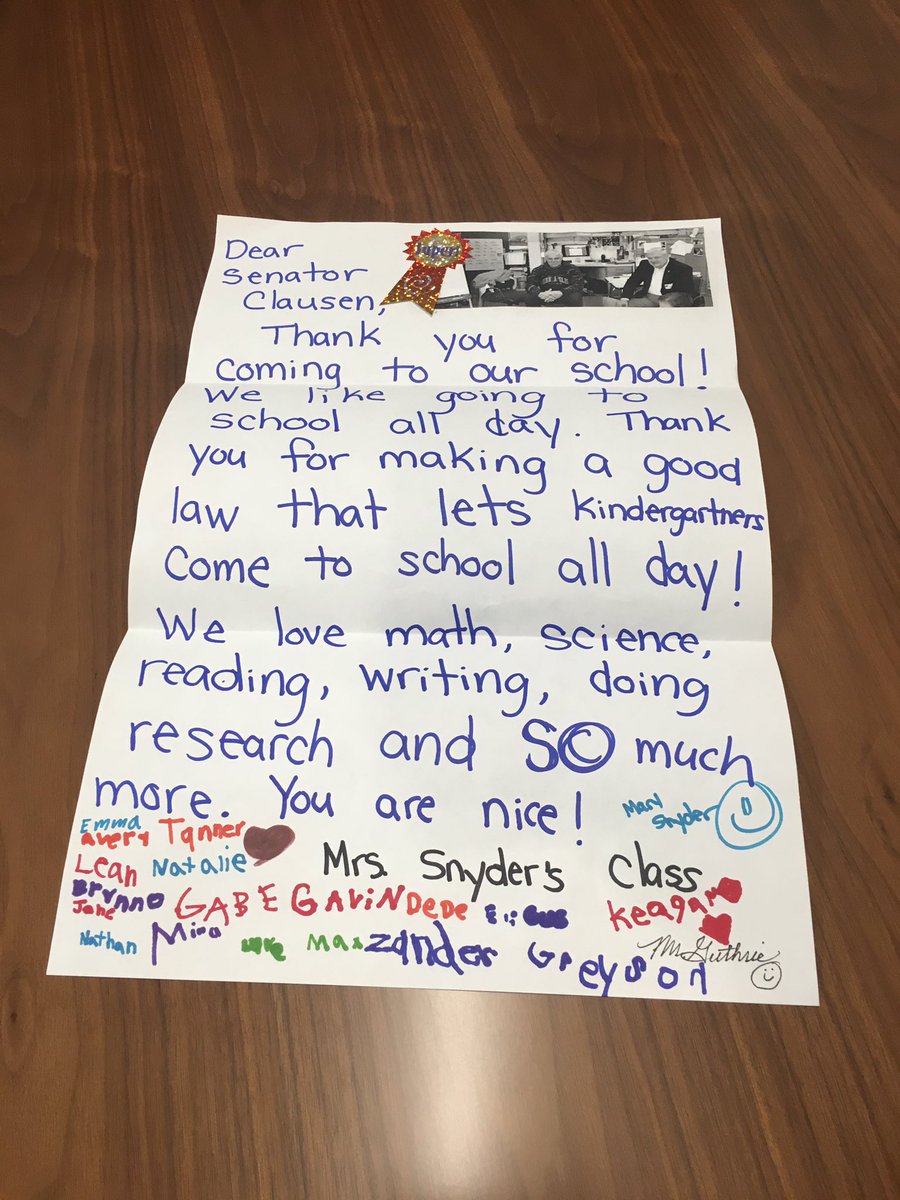 Dear
Senator
Clausen,
super
Thank you for
coming to our school!
We like going to
school all day. Thank
you for making a good
law that lets Kindergartners
Come to school all day!
We love math, science,
reading, writing, doing
research and SO much
more. You are nice!
Mary
Snyder
Emma
avery Tanner
Leah Natalie
Mrs. Snyder's Class
Brynno GABE GAVIN DeDe
Keagan
Jane
Nathan Mira
Max Zander Greyson
Mr Guthrie